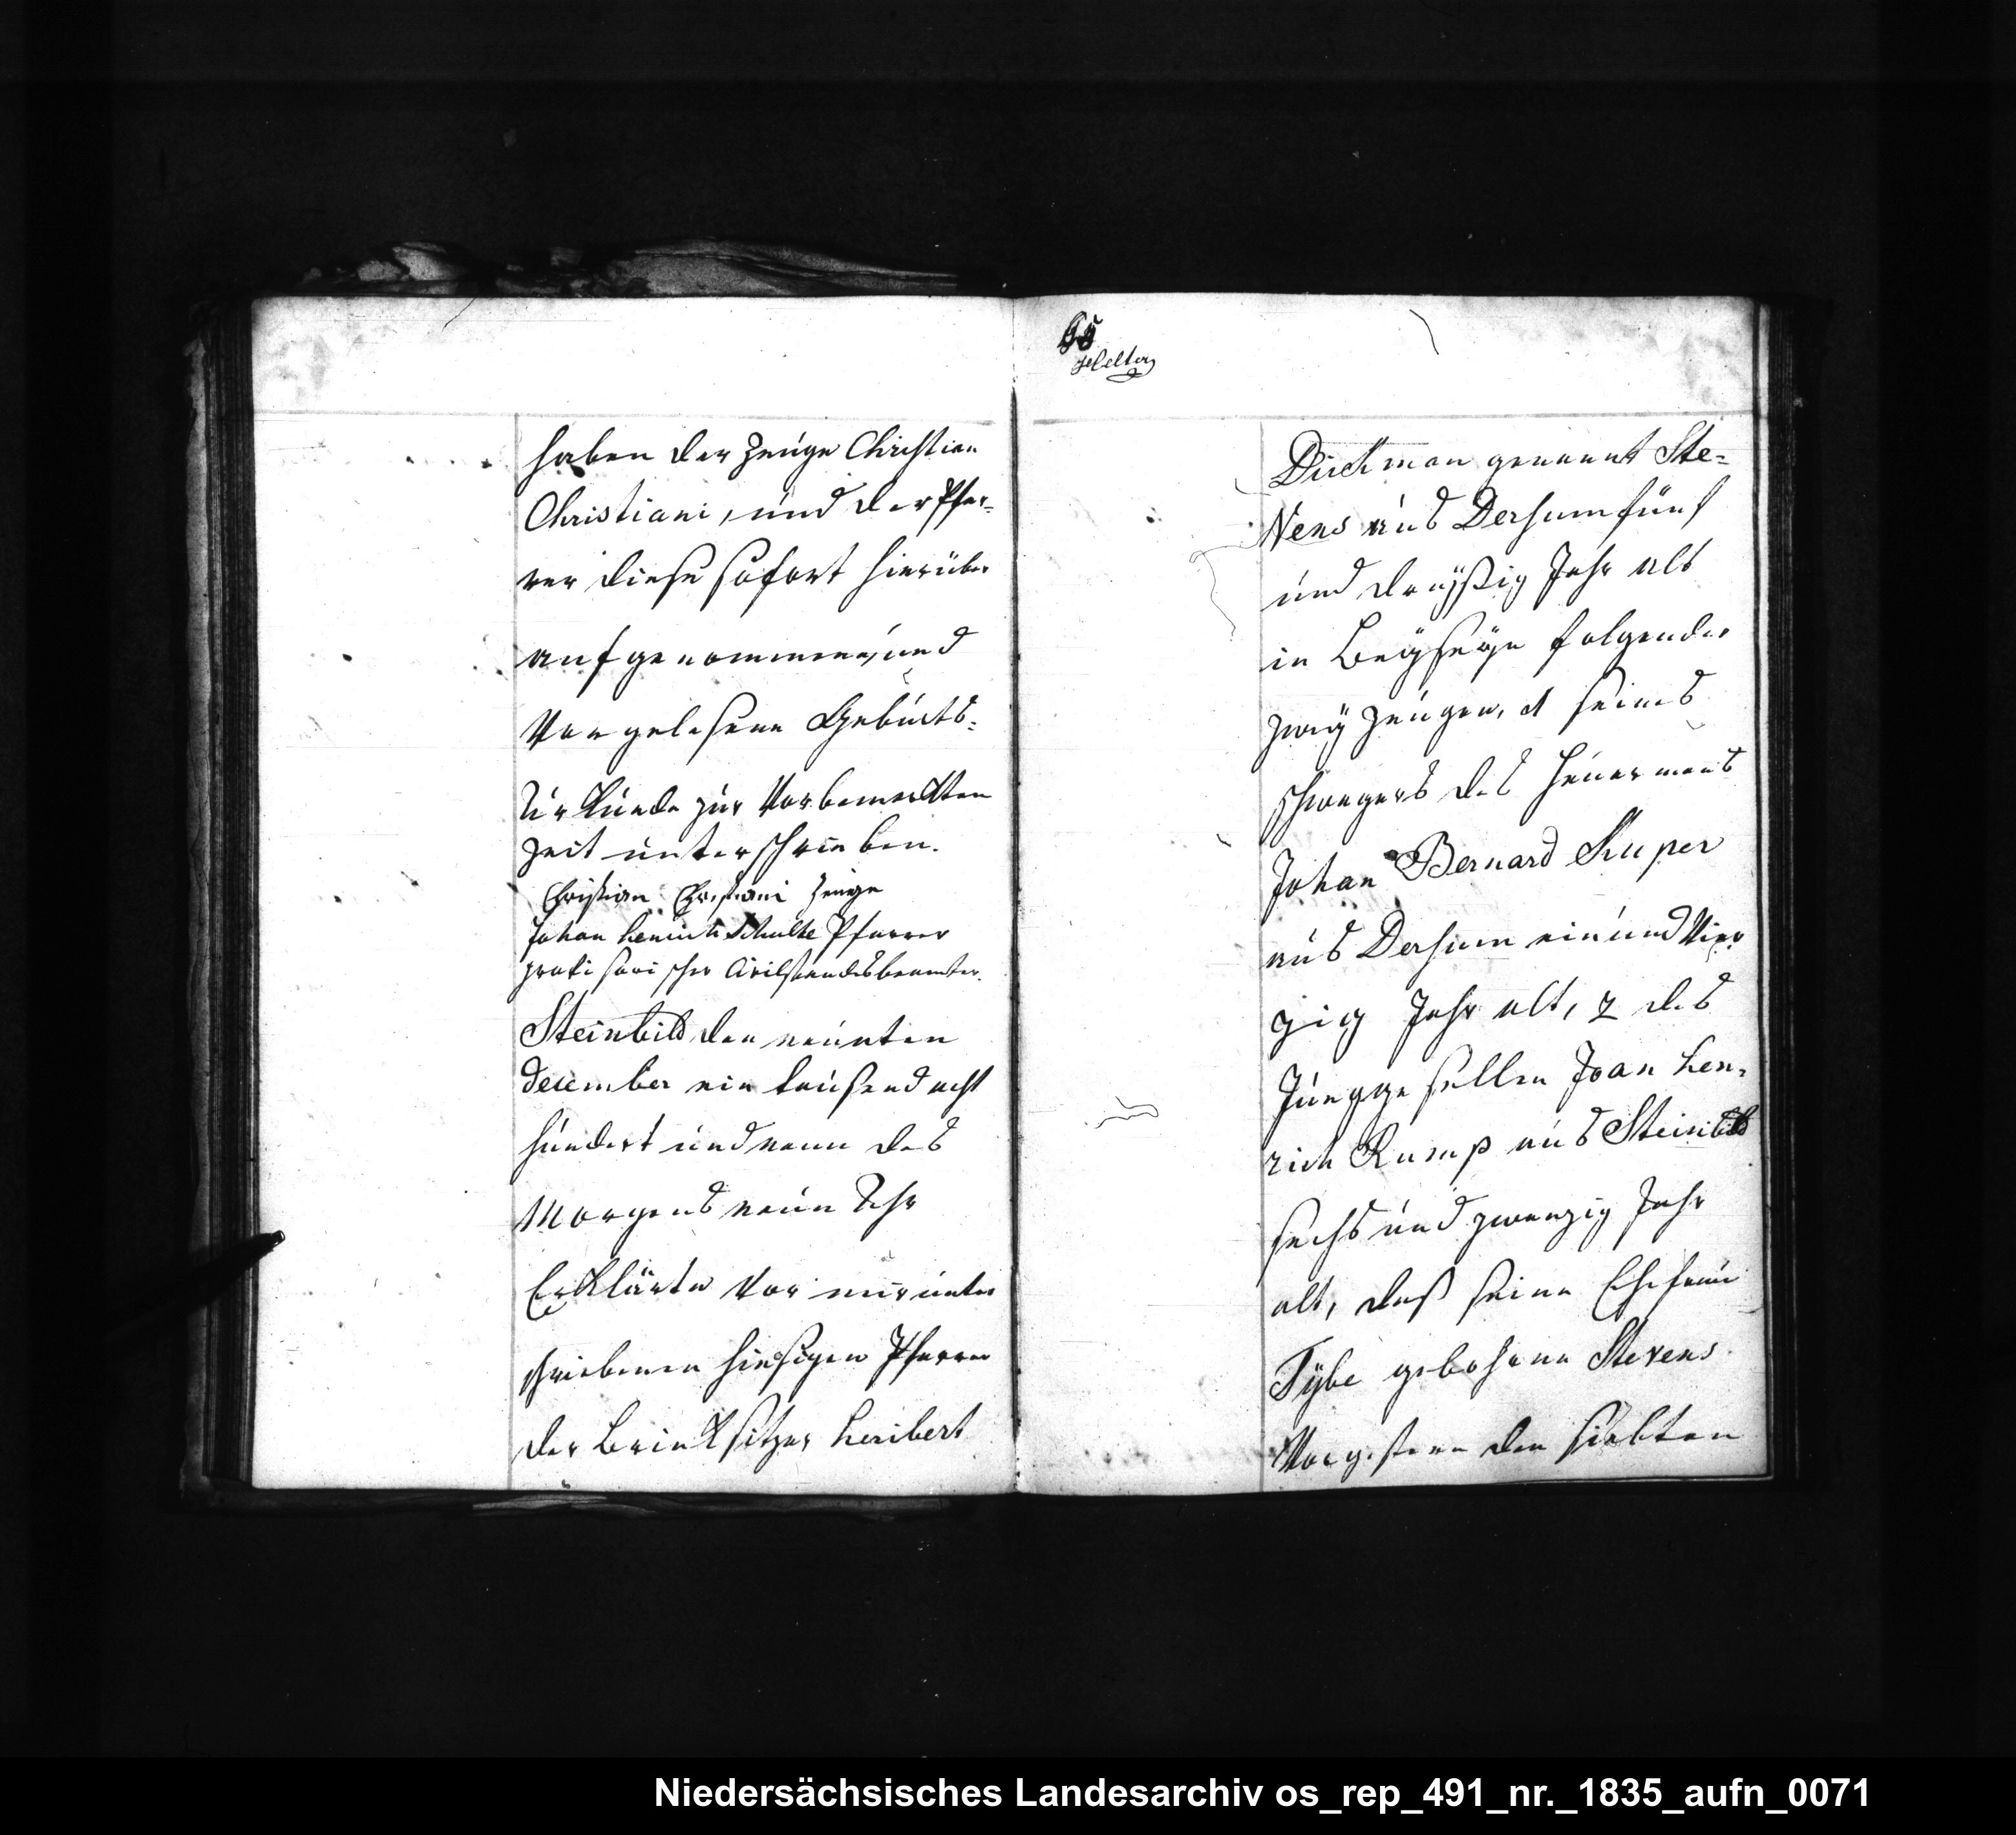 haben der Zeuge Christian
Christiani, und der Pfar-
rer diese sofort hierüber
aufgenommene, und
Vorgelesene Gebúrts-
Urkunde zur Vorbemerkten
Zeit unterschrieben.
Christian Christiani Zeuge
Johan Henrich Schulte Pfarrer
provisorischer Civilstandesbeamter.
Steinbild den neunten
december ein tausend acht
hundert und neun des
Morgends neun Uhr
Erklärte Vor mir unter
schriebenen hiesigen Pfarrer
der Brinksitzer Heribert
65
Dirckman genannt Ste-
Vens aus Dersum fünf
und dreyßig Jahr alt
in Beyseyn folgender
zwey Zeugen, 1 seines
schwagers des Heuermans
Johan Bernard Kuper
aus Dersum ein und Vier
zig Jahr alt, 2 des
Junggesellen Joan Hen-
rich Rump aus Steinbild
sechs und zwanzig Jahr
alt, daß seine Ehefrau
Tÿbe gebohrene Stevens
Vorgestern den siebten
Niedersächsisches Landesarchiv os_rep_491_nr._1835_aufn_0071